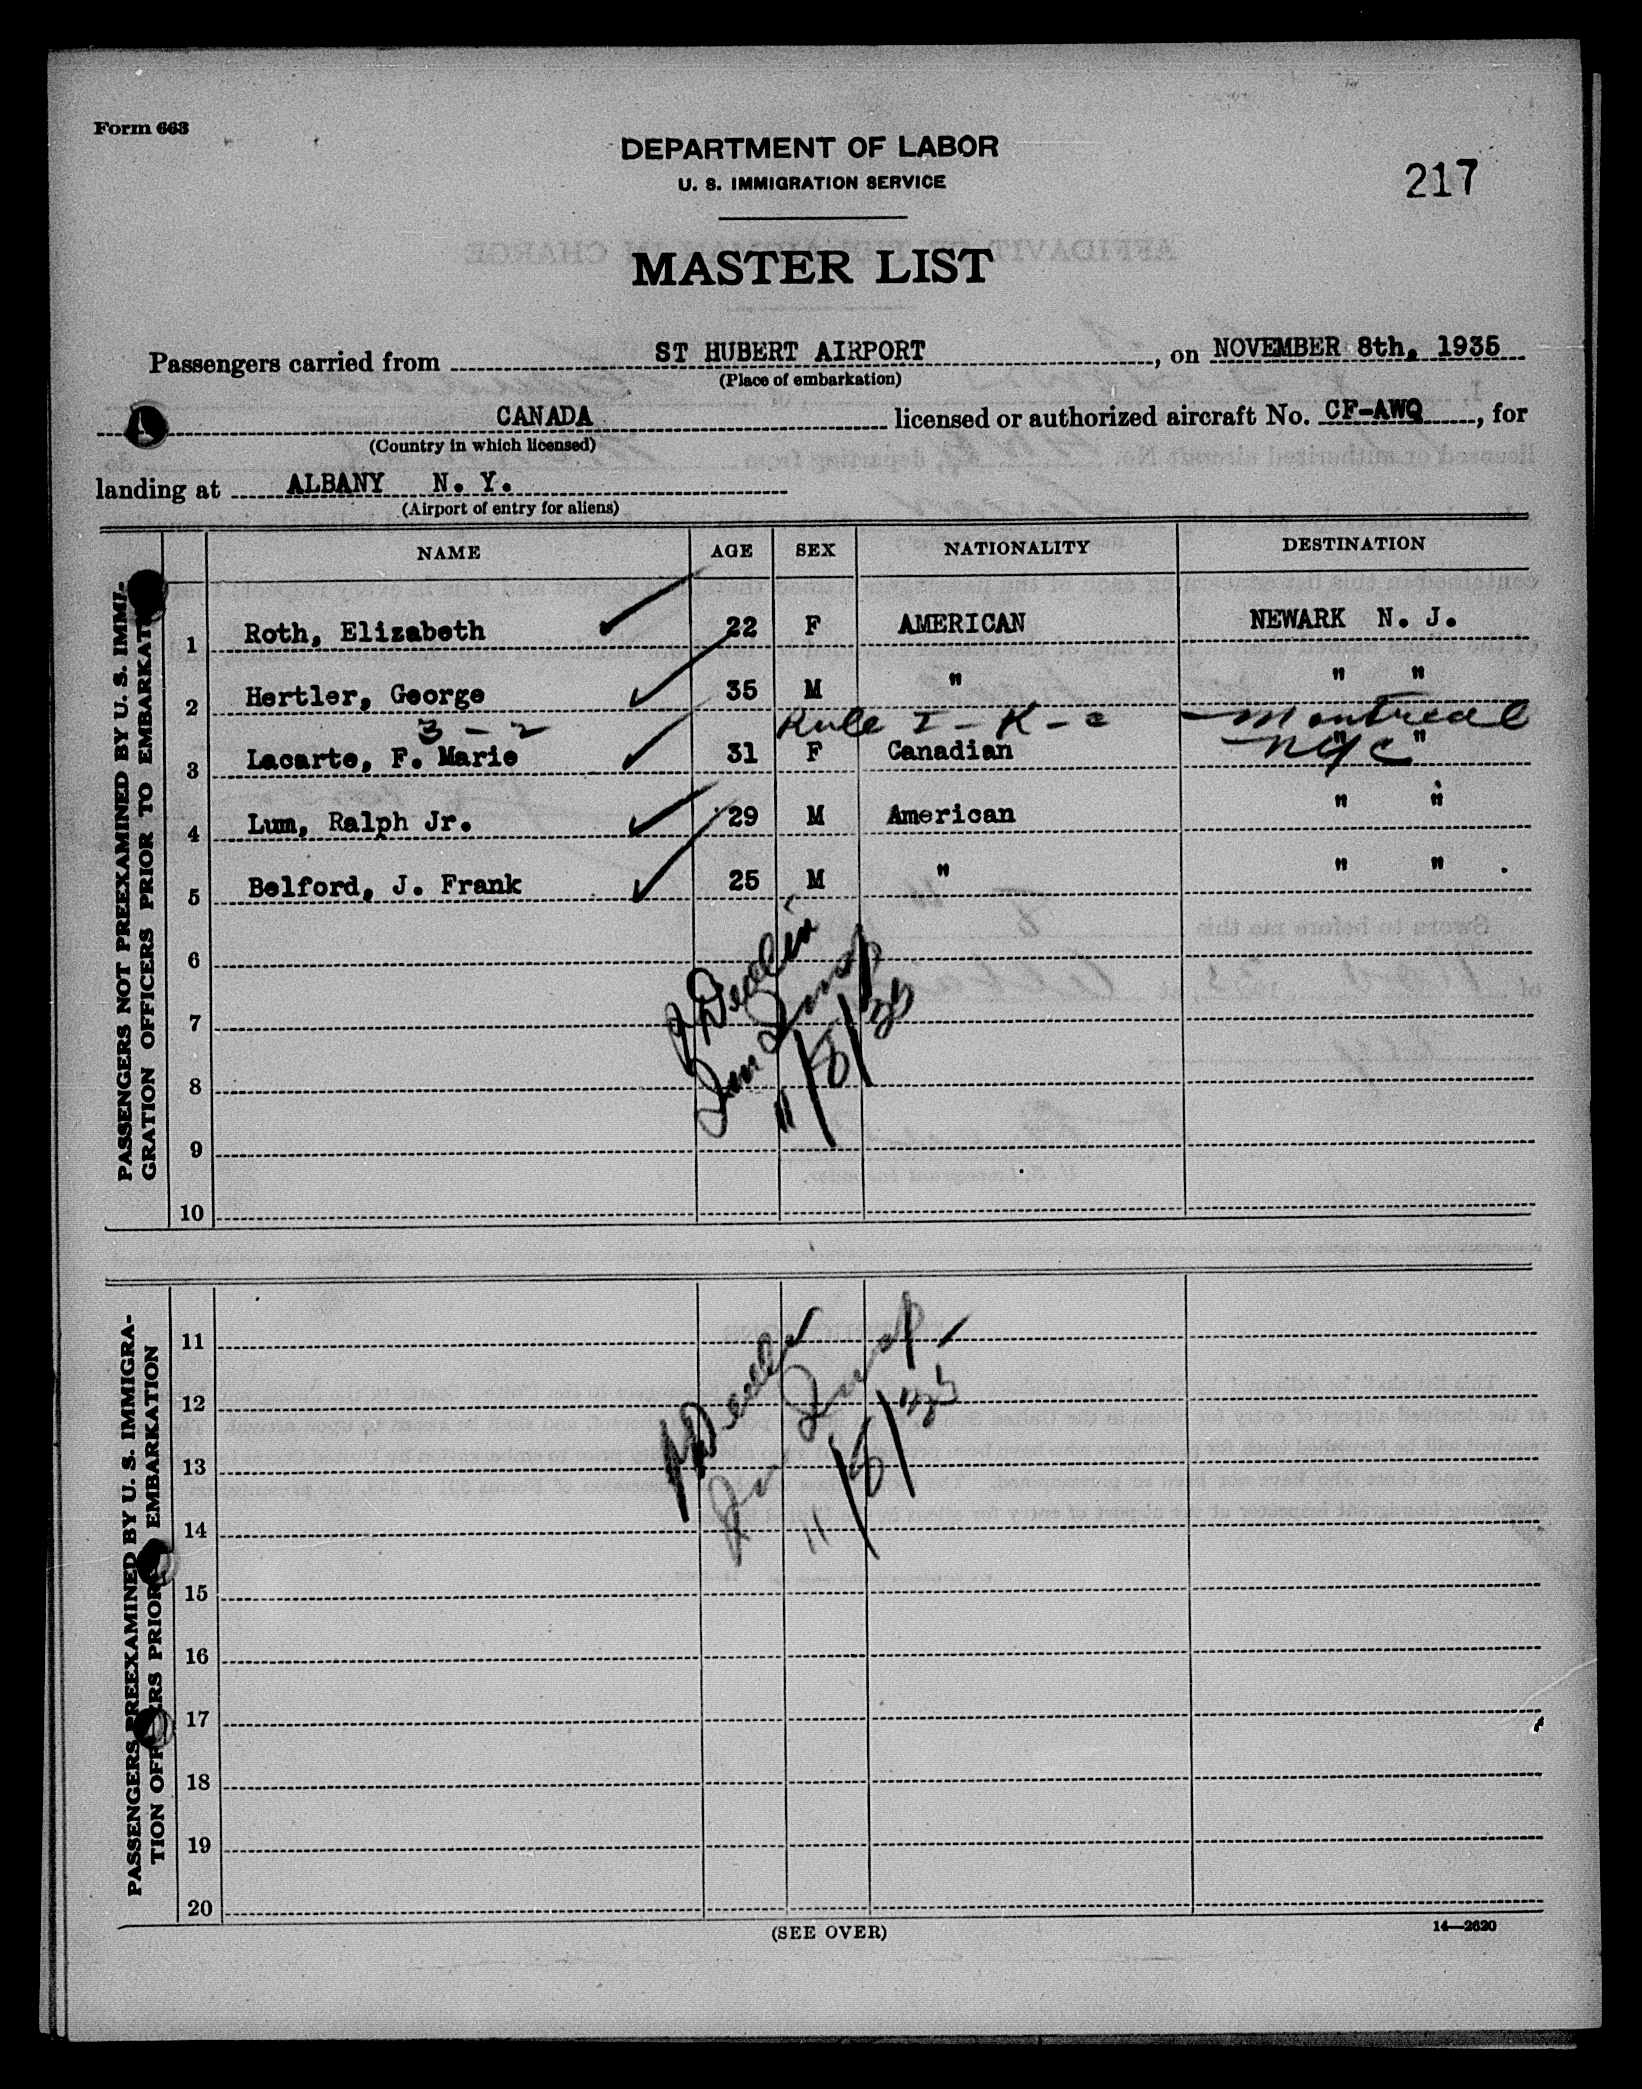 Form 663
DEPARTMENT OF LABOR
U. S. IMMIGRATION SERVICE
217
MASTER LIST
Passengers carried from ST HUBERT AIRPORT, on NOVEMBER 8th, 1935
(Place of embarkation)
CANADA licensed or authorized aircraft No. CF-AWQ, for
(Country in which licensed)
landing at ALBANY N. Y.
(Airport of entry for aliens)
NAME AGE SEX NATIONALITY DESTINATION
PASSENGERS NOT PREEXAMINED BY U. S. IMMI-
GRATION OFFICERS PRIOR TO EMBARKAT
1 Roth, Elizabeth 22 F AMERICAN NEWARK N. J.
2 Hertler, George 35 M " " "
3 - 2 Rule I - K - c Montreal
3 Lacarte, F. Marie 31 F Canadian " "
NYC
4 Lum, Ralph Jr. 29 M American " "
5 Belford, J. Frank 25 M " " " .
6
7
8
9
10
11/8/35
PASSENGERS PREEXAMINED BY U. S. IMMIGRA-
TION OFFICERS PRIOR EMBARKATION
11
12
13
14
15
16
17
18
19
20
11/8/35
(SEE OVER)
14—2620